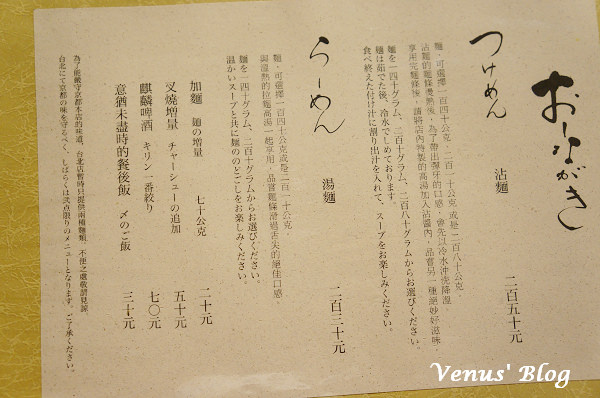 おしながき
つけめん　沾麵　二百五十元
麵，可選擇一百四十公克，二百一十公克 或是二百八十公克
沾麵的麵條燙熟後，為了帶出彈牙的口感，會先以冷水沖洗降溫
享用完麵條後，請將店內特製的高湯加入沾醬內，品嘗另一種絕妙好滋味
麵を一四十グラム、二百十グラム、二百八十グラムからお選びください。
麺は茹でた後、冷水でしめております。
食べ終えた付け汁に割り出汁を入れて、スープをお楽しみください。
らーめん　湯麵　二百三十元
麵，可選擇一百四十公克或是二百一十公克，
與溫熱的拉麵高湯一起享用，品嘗麵條滑過舌尖的絕佳口感。
麵を一四十グラム、二百十グラムからお選びください。
温かいスープと共に麺ののどごしをお楽しみください。
加麵　麺の増量　七十公克　二十元
叉燒增量　チャーシューの追加　五十元
麒麟啤酒　キリン一番絞り　七〇元
意猶未盡時的餐後飯　〆のご飯　三十元
為了能嚴守京都本店的味道，台北店暫時只提供兩種麵類，不便之處敬請見諒。
台北にて京都の味を守るべく、しばらくは弐点限りのメニューとなります。ご了承ください。
Venus' Blog